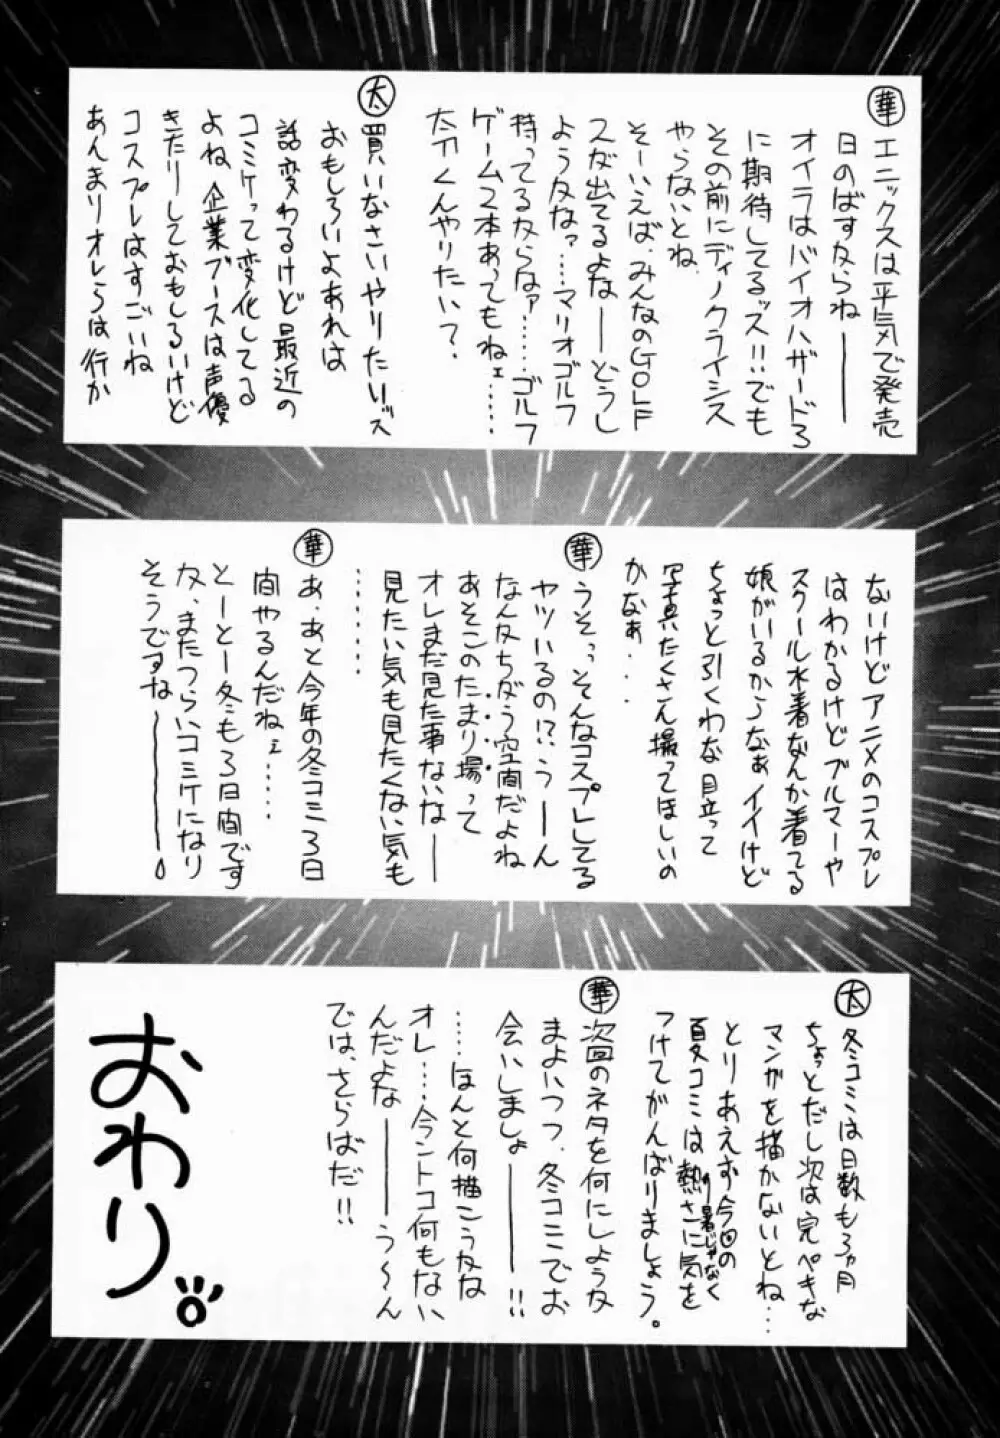 華 エニックスは平気で発売
日のばすならね――
オイラはバイオハザード3
に期待してるッス!!でも
その前にディノクライシス
やらないとね.
そーいえば、みんなのGOLF
スグ出てるよな――どうし
ような…マリオゴルフ
持ってるならなァ……ゴルフ
ゲーム2本あってもねェ……
太刀くんやりたい?.
太 買いなさいやりたいッス
おもしろいよあれは
話変わるけど最近の
コミケって変化してる
よね、企業ブースは声優
きたりしておもしろいけど
コスプレはすごいね
あんまりオレらは行か
ないけどアニメのコスプレ
はわかるけどブルマーや
スクール水着なんか着てる
娘がいるからなぁイイけど
ちょっと引くわな目立って
写真たくさん撮ってほしいの
かなぁ...
華 うそっっそんなコスプレしてる
ヤツいるの!?、うーん
なんたちがう空間だよね
あそこのたまり場って
オレまだ見た事ないな――
見たい気も見たくない気も
………
華 あ、あと今年の冬コミ3日
間やるんだねェ……
とーとー冬も3日間です
な、またつらいコミケになり
そうですな――――。
太 冬コミは日数も3カ月
ちょっとだし次は完ペキな
マンガを描かないとね…
とりあえず今回の
夏コミは熱さに気を
り暑じゃなく
つけてがんばりましょう。
華 次回のネタを何にしような
まよいつつ、冬コミでお
会いしましょ――――!!
……ほんと何描こうなな
オレ…今ントコ何もない
んだよな――――う~ん
では、さらばだ!!
おわり。